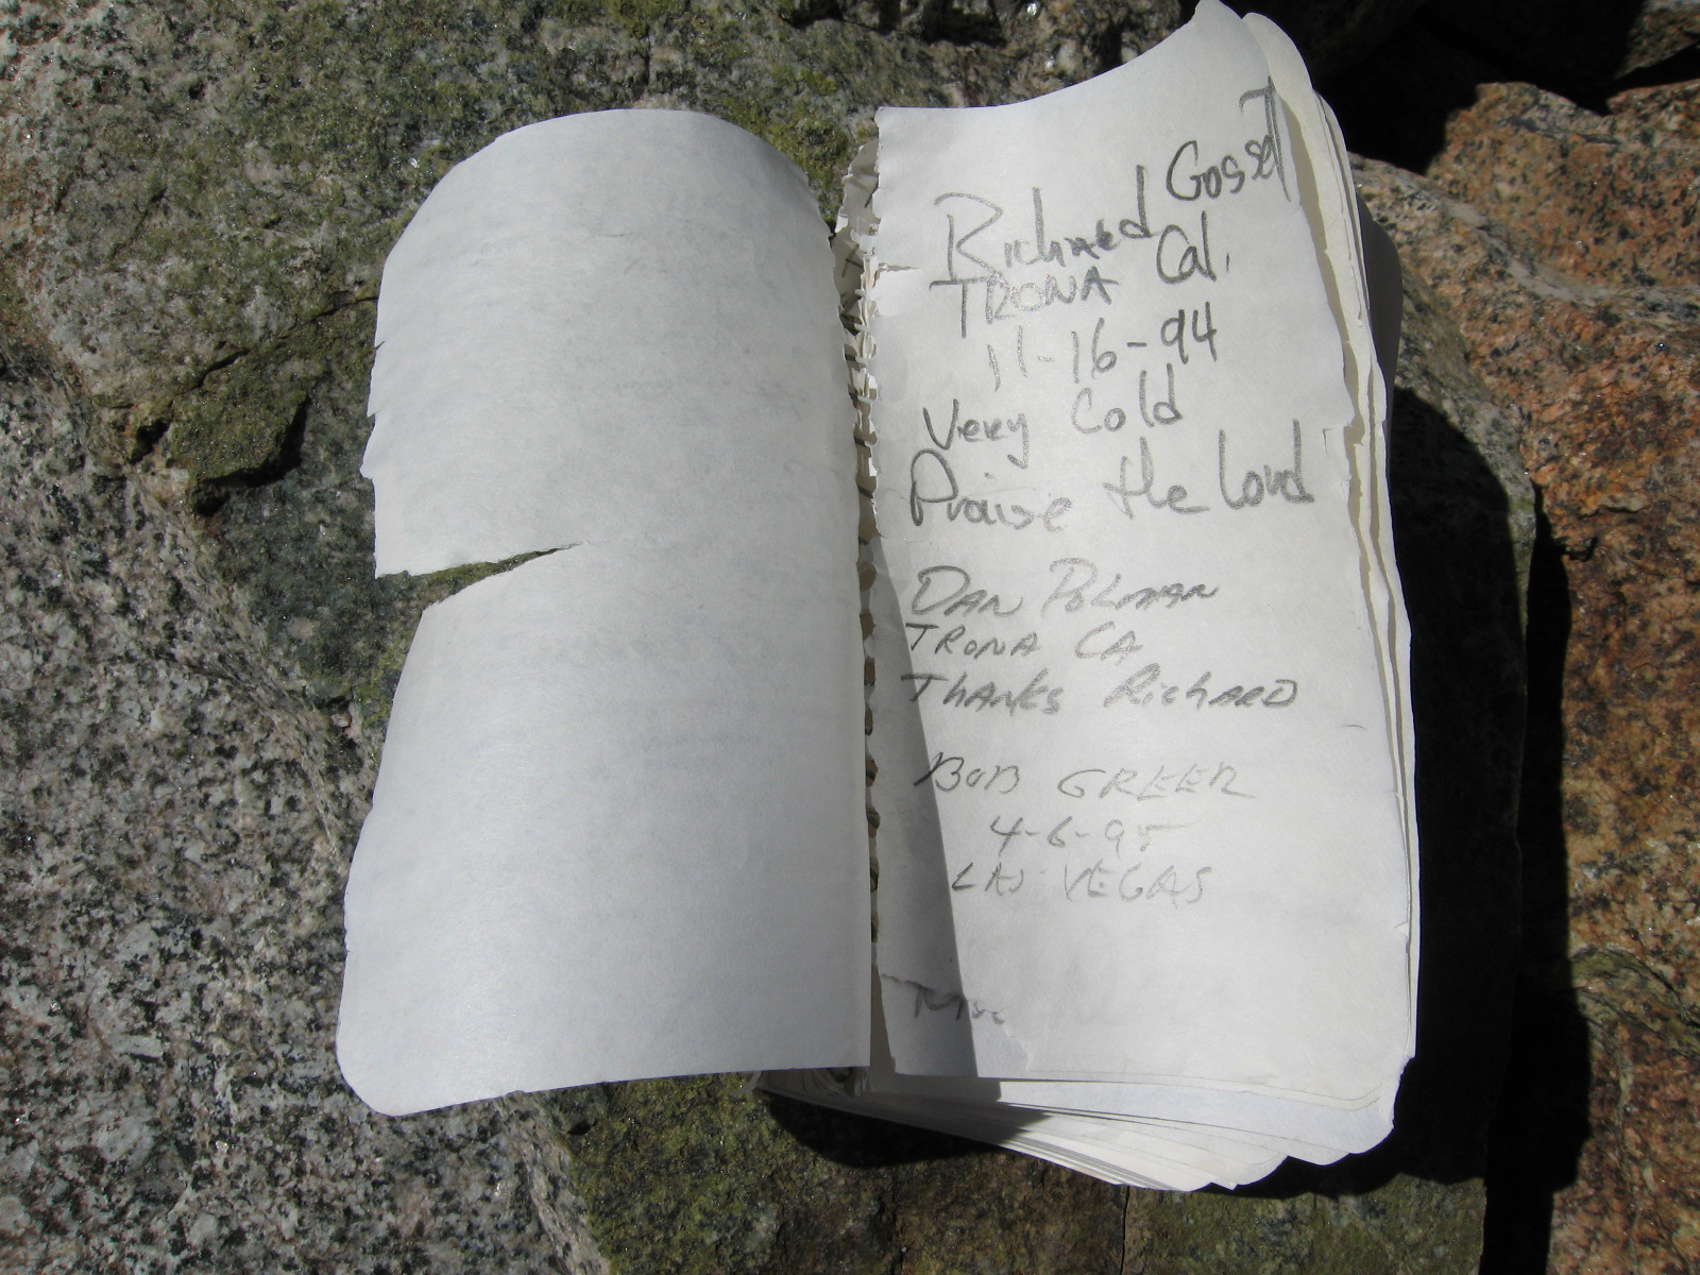 Richard Gossett
TRONA Cal.
11-16-94
Very Cold
Praise the Lord
DAN POLMAN
TRONA CA
THANKS RICHARD
BOB GREER
4-6-95
LAS VEGAS